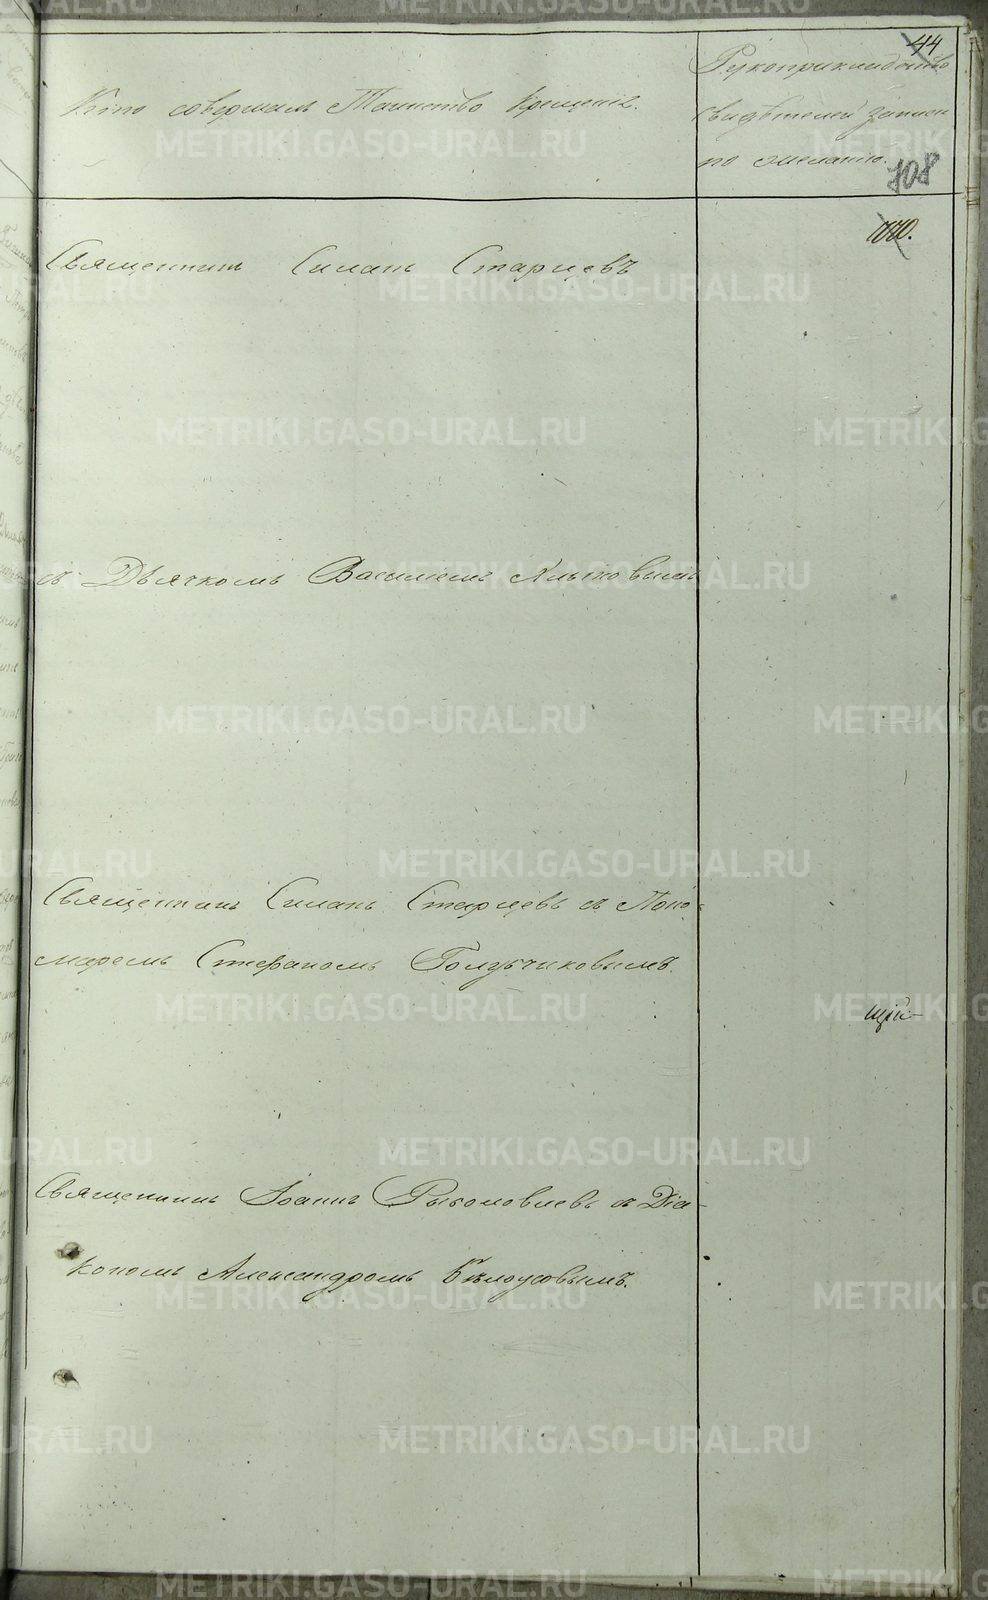 44
Кто совершалъ Таинство крещенія.
Рукоприкладство
свидѣтелей записи
по желанію.
108
Священникъ Силанъ Старцевъ
съ Дьячкомъ Василіемъ
Священникъ Силанъ Старцевъ съ Поно-
маремъ Стефаномъ Голубчиковымъ.
щій
Священникъ Іоаннъ съ Діа-
кономъ Александромъ Бѣлоусовымъ.
METRIKI.GASO-URAL.RU